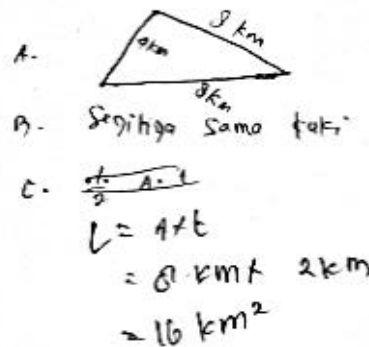 A.
8 km
4km
8km
B. Segitiga sama kaki
C.
L = A x t
= 8 km x 2 km
= 16 km²